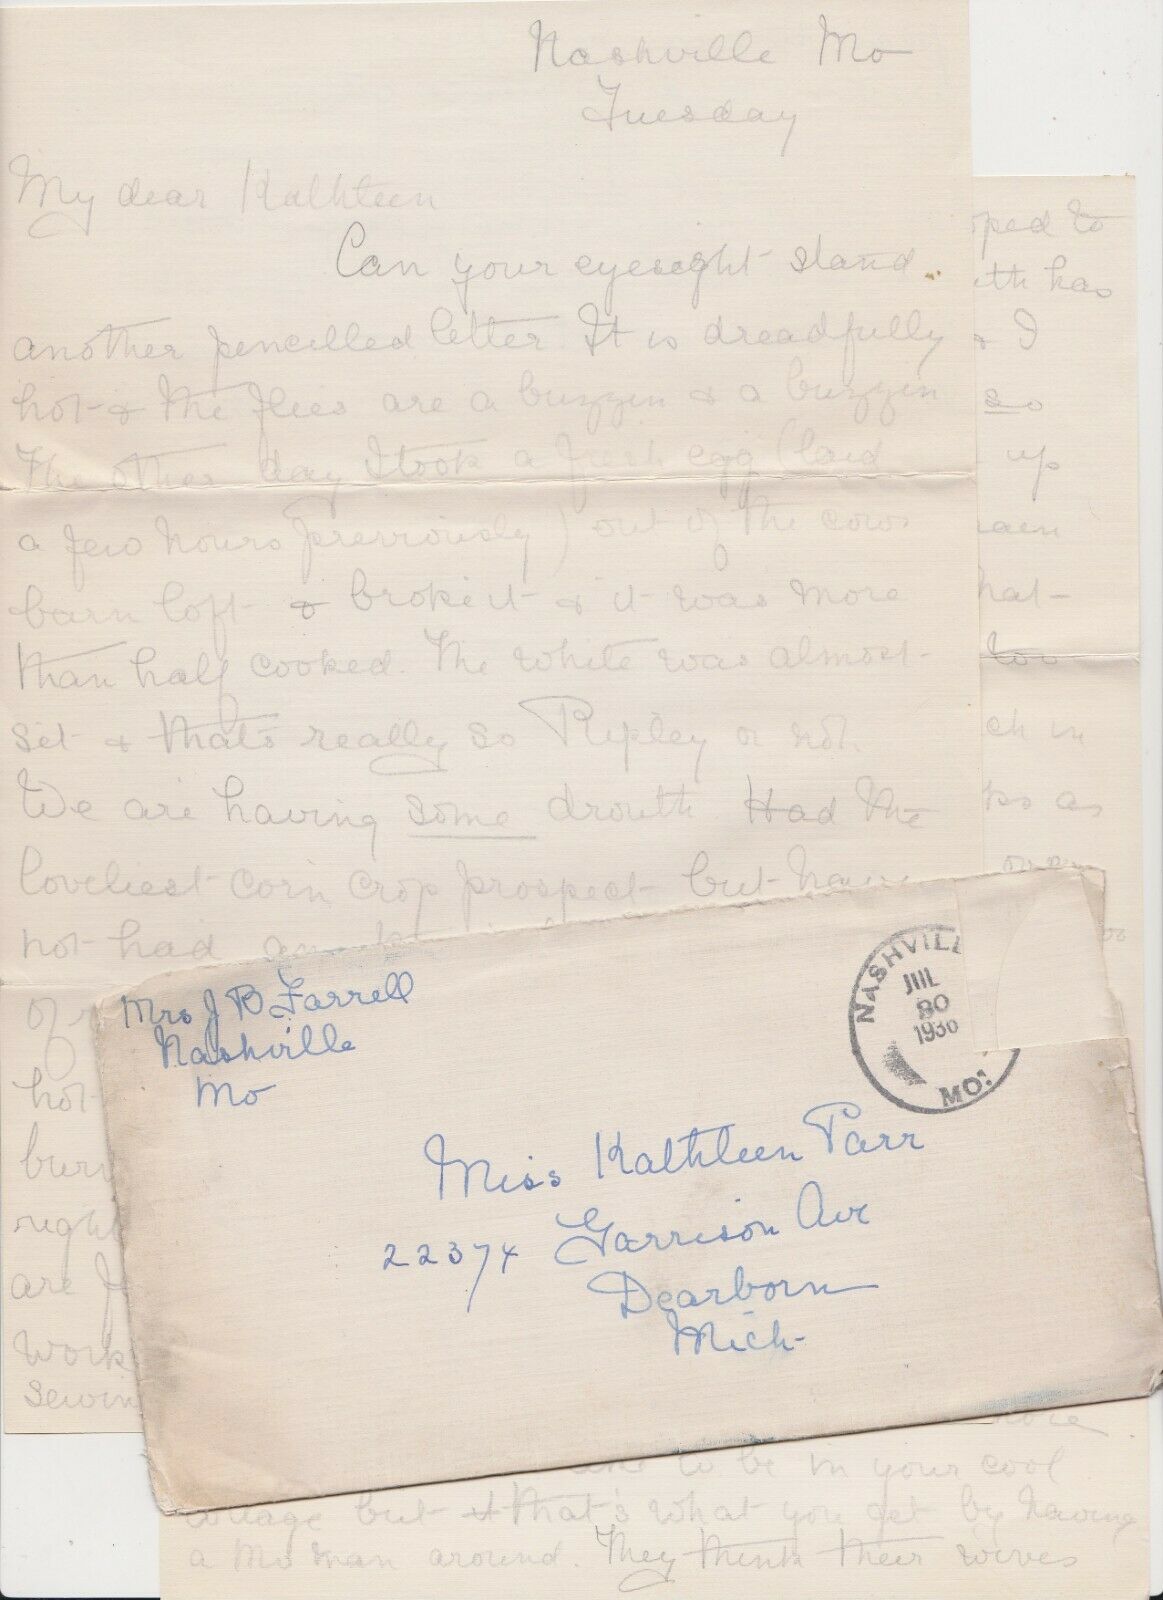 Nashville Mo
Tuesday
My dear Kathleen
Can your eyesight stand
another pencilled letter. It is dreadfully
hot & the flies are a buzzin & a buzzin
The other day I took a fresh egg (laid
a few hours previously) out of the cows
barn loft & broke it & it was more
than half cooked. The white was almost
set & that's really so Ripley or not.
We are having some drouth. Had the
loveliest corn crop prospect but have
not had
of
hot
burn
right
are
work
sewin
ped to
th has
& I
so
up
hat
too
ch in
ks as
Mrs J B Farrell
Nashville
Mo
NASHVILL
JUL
30
1936
MO.
Miss Kathleen Parr
22374 Garrison Ave
Dearborn
Mich
more
like to be in your cool
cottage but that's what you get by having
a Mo man around. They think their wives